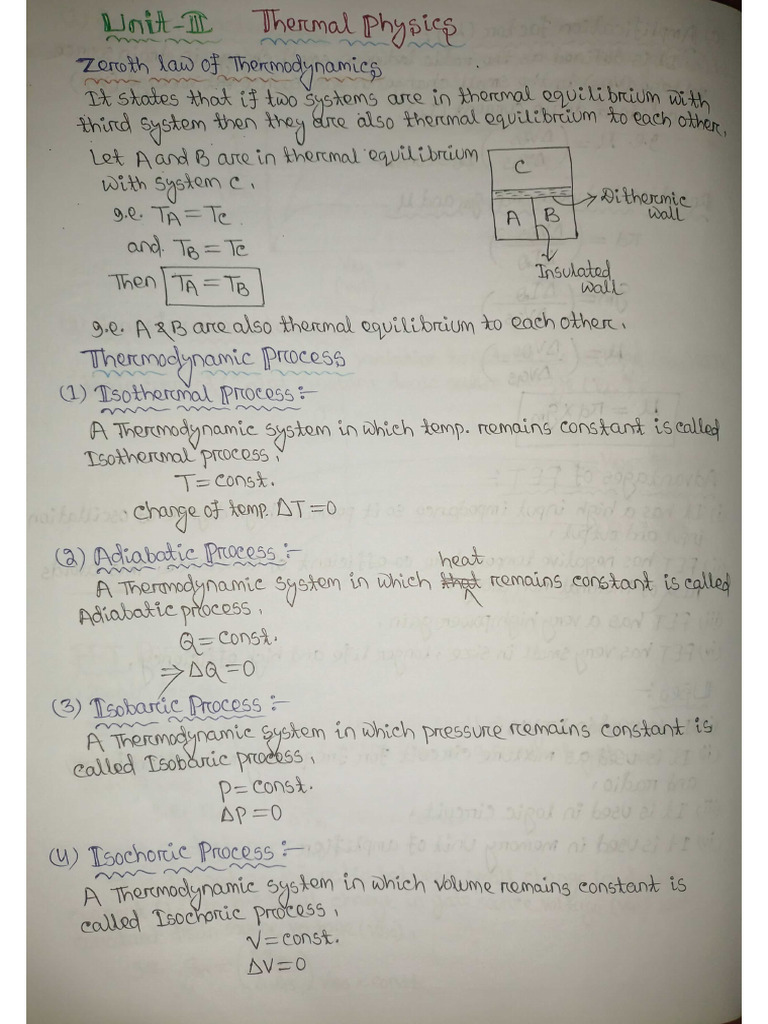 Unit-III Thermal Physics
Zeroth law of Thermodynamics
It states that if two systems are in thermal equilibrium with
third system then they are also thermal equilibrium to each other.
Let A and B are in thermal equilibrium
with system C.
g.e. TA = TC
and. TB = TC
Then TA = TB
C
A B
Dithermic
wall
Insulated
wall
g.e. A & B are also thermal equilibrium to each other.
Thermodynamic Process
(1) Isothermal Process:-
A Thermodynamic system in which temp. remains constant is called
Isothermal process.
T = const.
change of temp. ΔT = 0
(2) Adiabatic Process:-
heat
A Thermodynamic system in which remains constant is called
Adiabatic process.
Q = const.
⇒ ΔQ = 0
(3) Isobaric Process:-
A Thermodynamic system in which pressure remains constant is
called Isobaric process.
P = const.
ΔP = 0
(4) Isochoric Process:-
A Thermodynamic system in which volume remains constant is
called Isochoric process.
V = const.
ΔV = 0